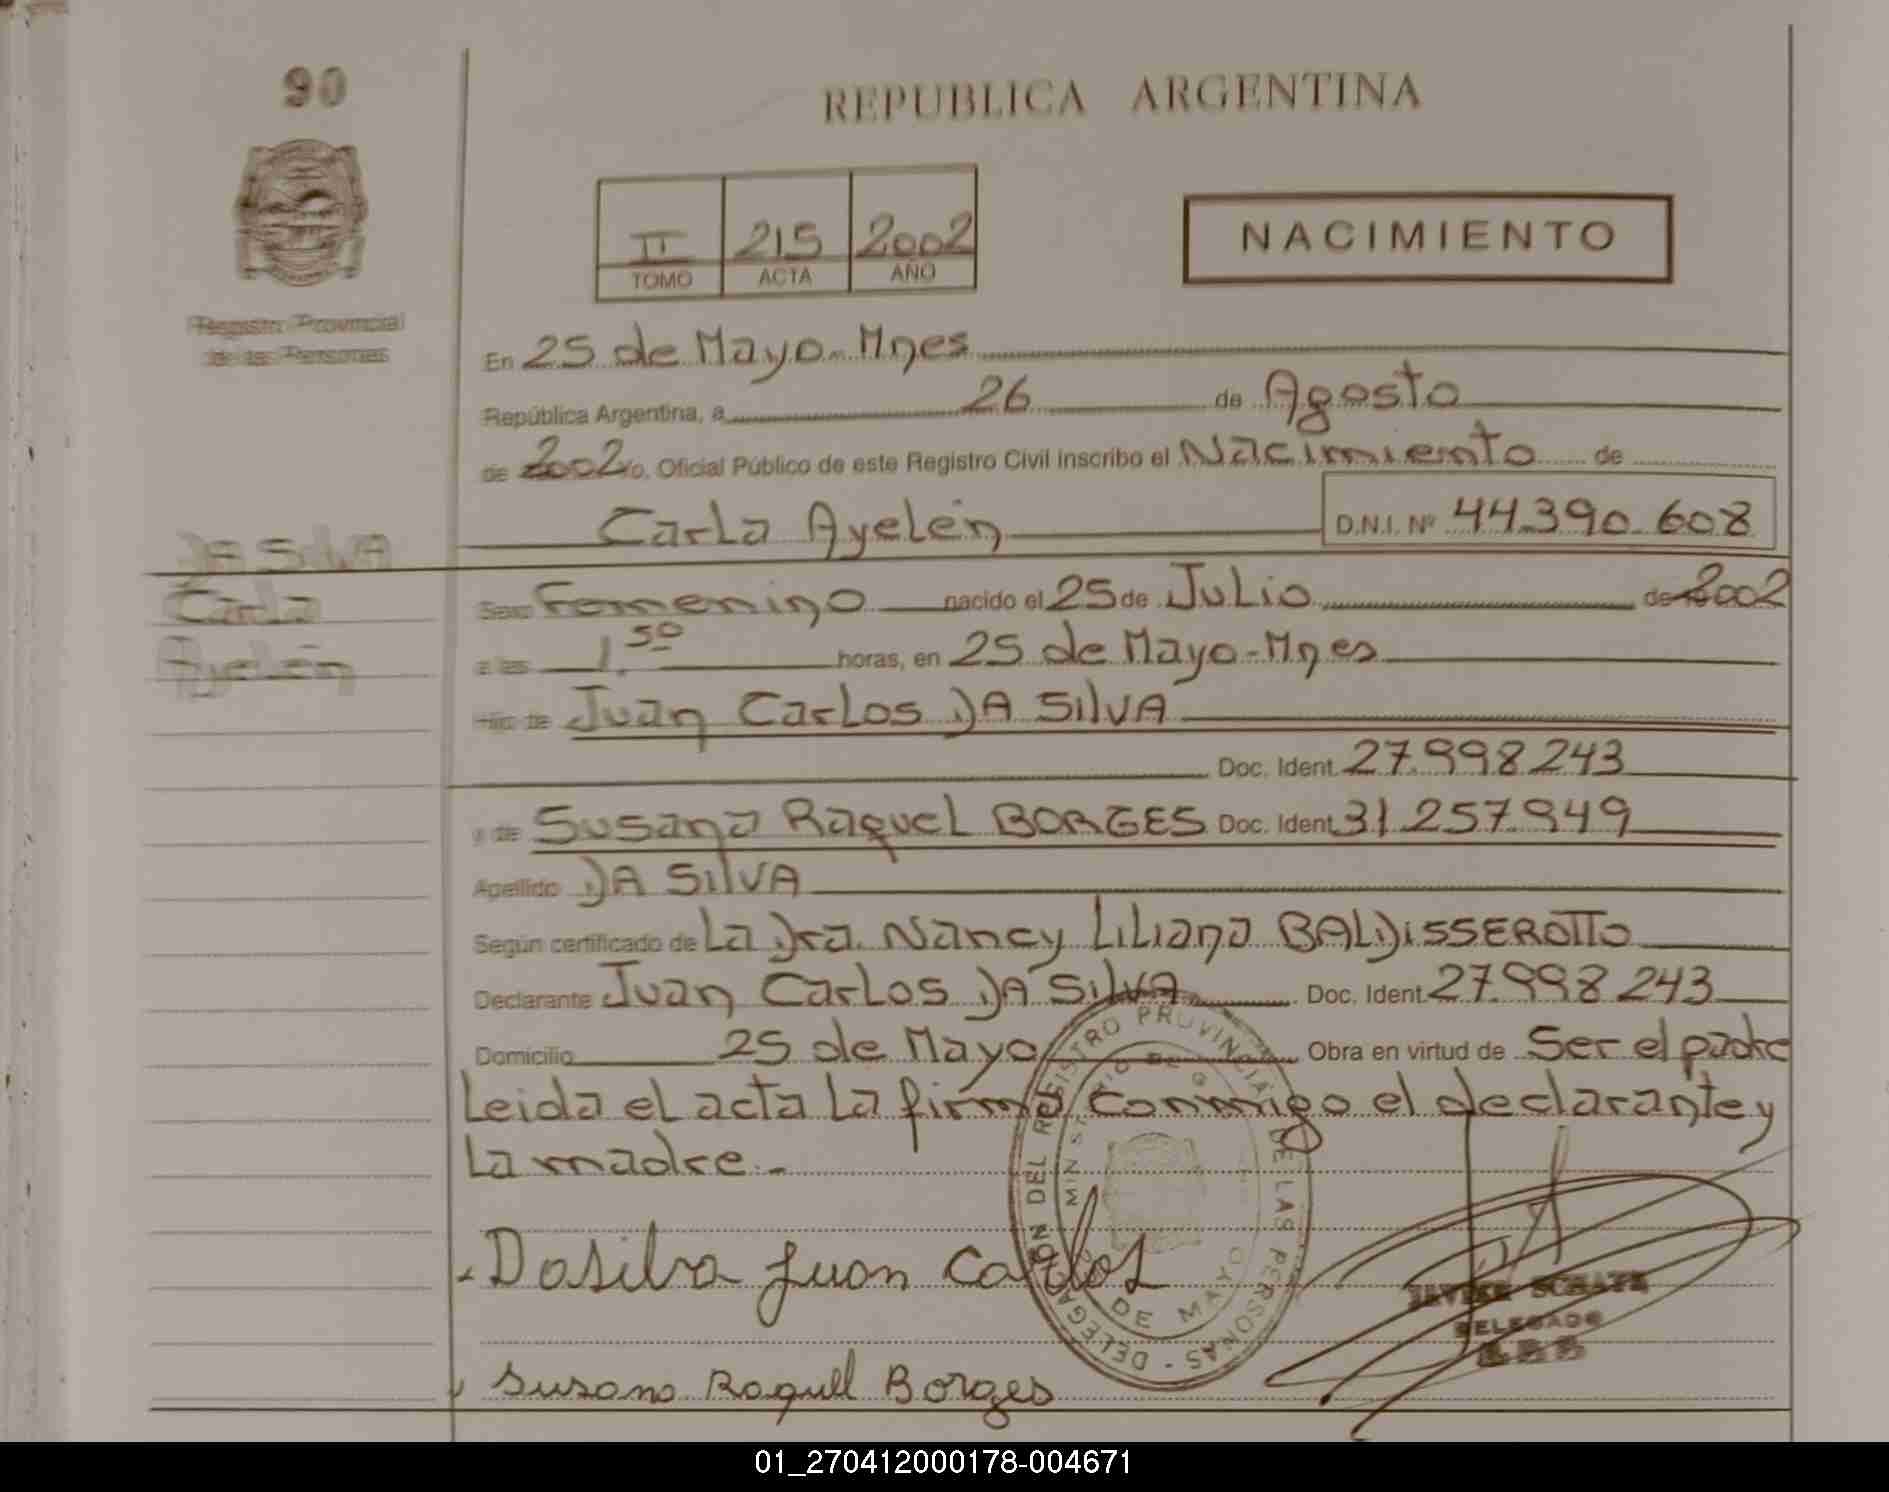 90
REPUBLICA ARGENTINA
II 215 2002
TOMO ACTA AÑO
NACIMIENTO
Registro Provincial
de las Personas
En 25 de Mayo-Mnes
República Argentina, a 26 de Agosto
de 2002 yo, Oficial Público de este Registro Civil inscribo el Nacimiento de
Carla Ayelén D.N.I. Nº 44.390.608
DA SILVA
Carla
Ayelén
Sexo Femenino nacido el 25 de Julio de 2002
a las 1.50 horas, en 25 de Mayo-Mnes
Hijo de Juan Carlos DA SILVA
Doc. Ident. 27.998.243
y de Susana Raquel BORGES Doc. Ident. 31.257.949
Apellido DA SILVA
Según certificado de La Dra. Nancy Liliana BALDISSEROTTO
Declarante Juan Carlos DA SILVA Doc. Ident. 27.998.243
Domicilio 25 de Mayo Obra en virtud de Ser el padre
Leida el acta la firma conmigo el declarante y
La madre.-
Dasilva Juan Carlos
Susana Raquel Borges
DELEGACIÓN DEL REGISTRO PROVINCIAL DE LAS PERSONAS
MINISTERIO DE G
DE MAYO
DELEGADO
01_270412000178-004671